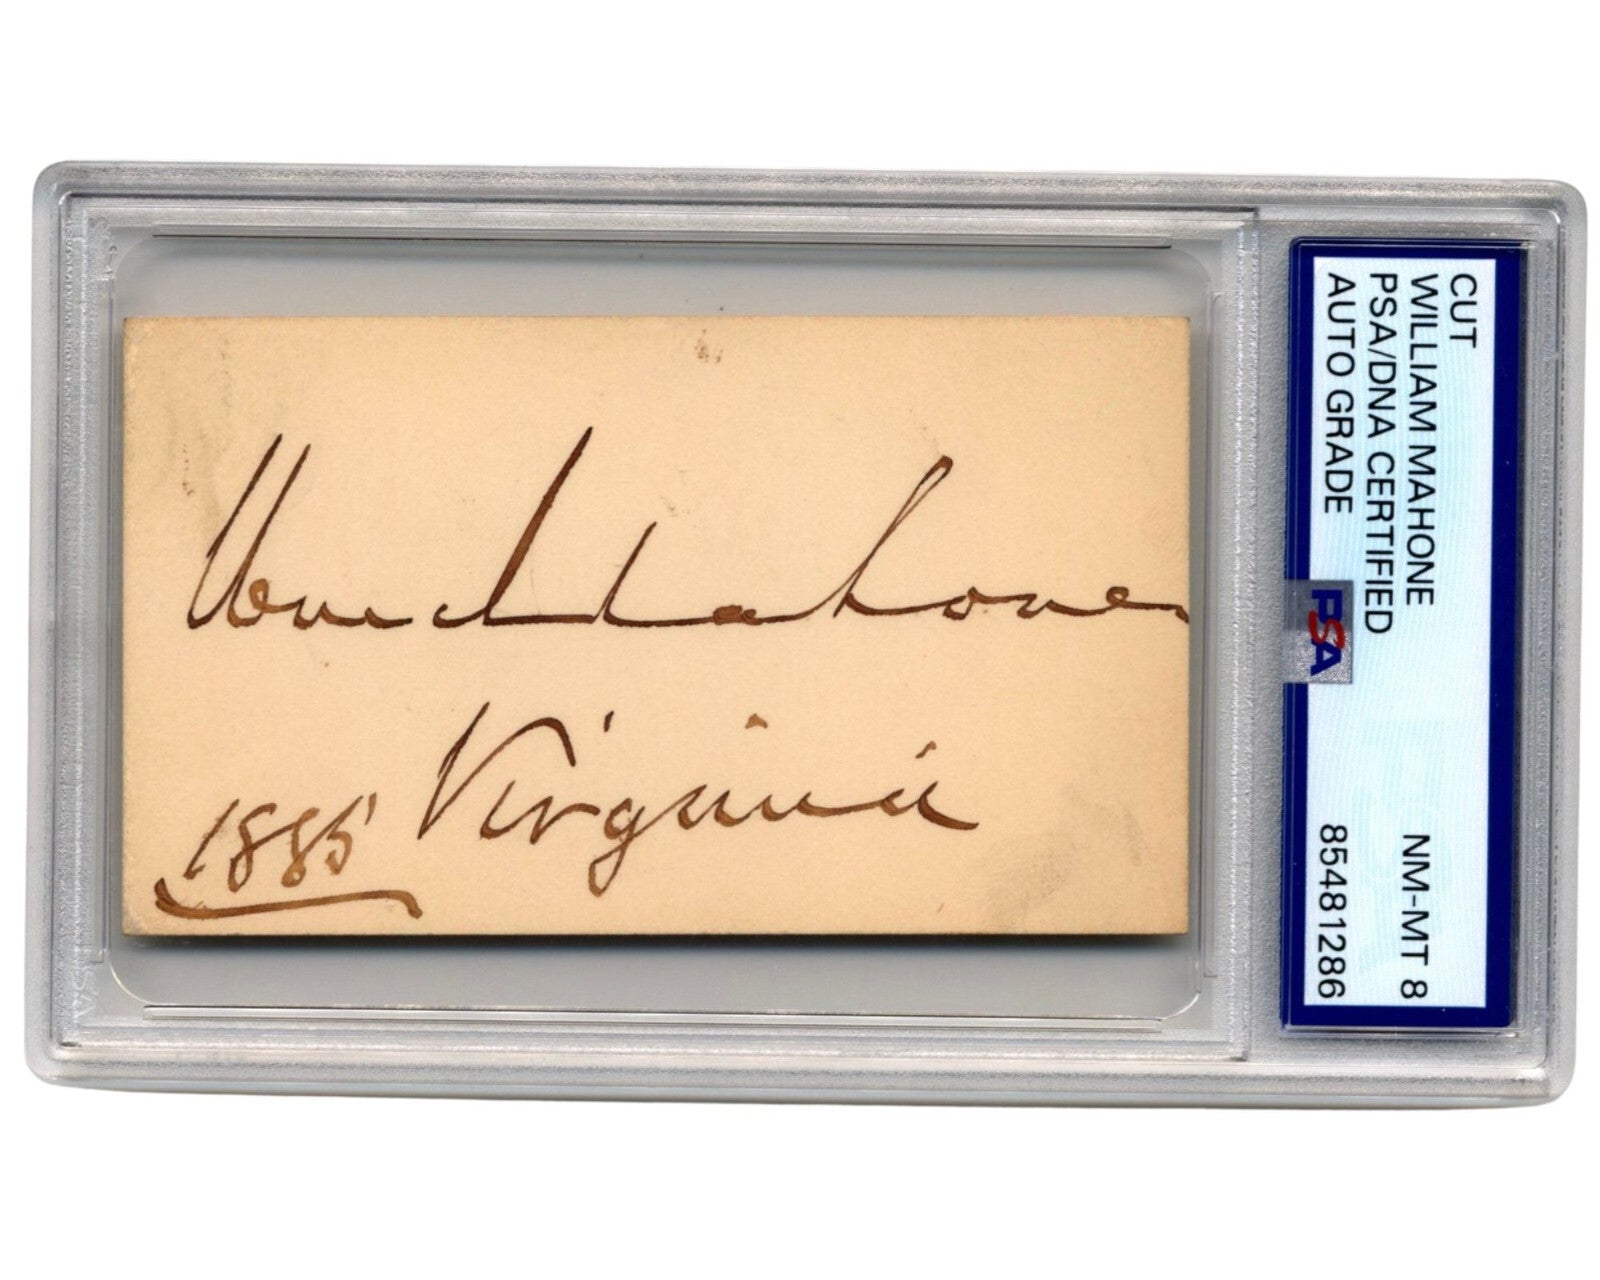 Wm Mahone
Virginia
1885
CUT
WILLIAM MAHONE
PSA/DNA CERTIFIED
AUTO GRADE
NM-MT 8
85481286
PSA